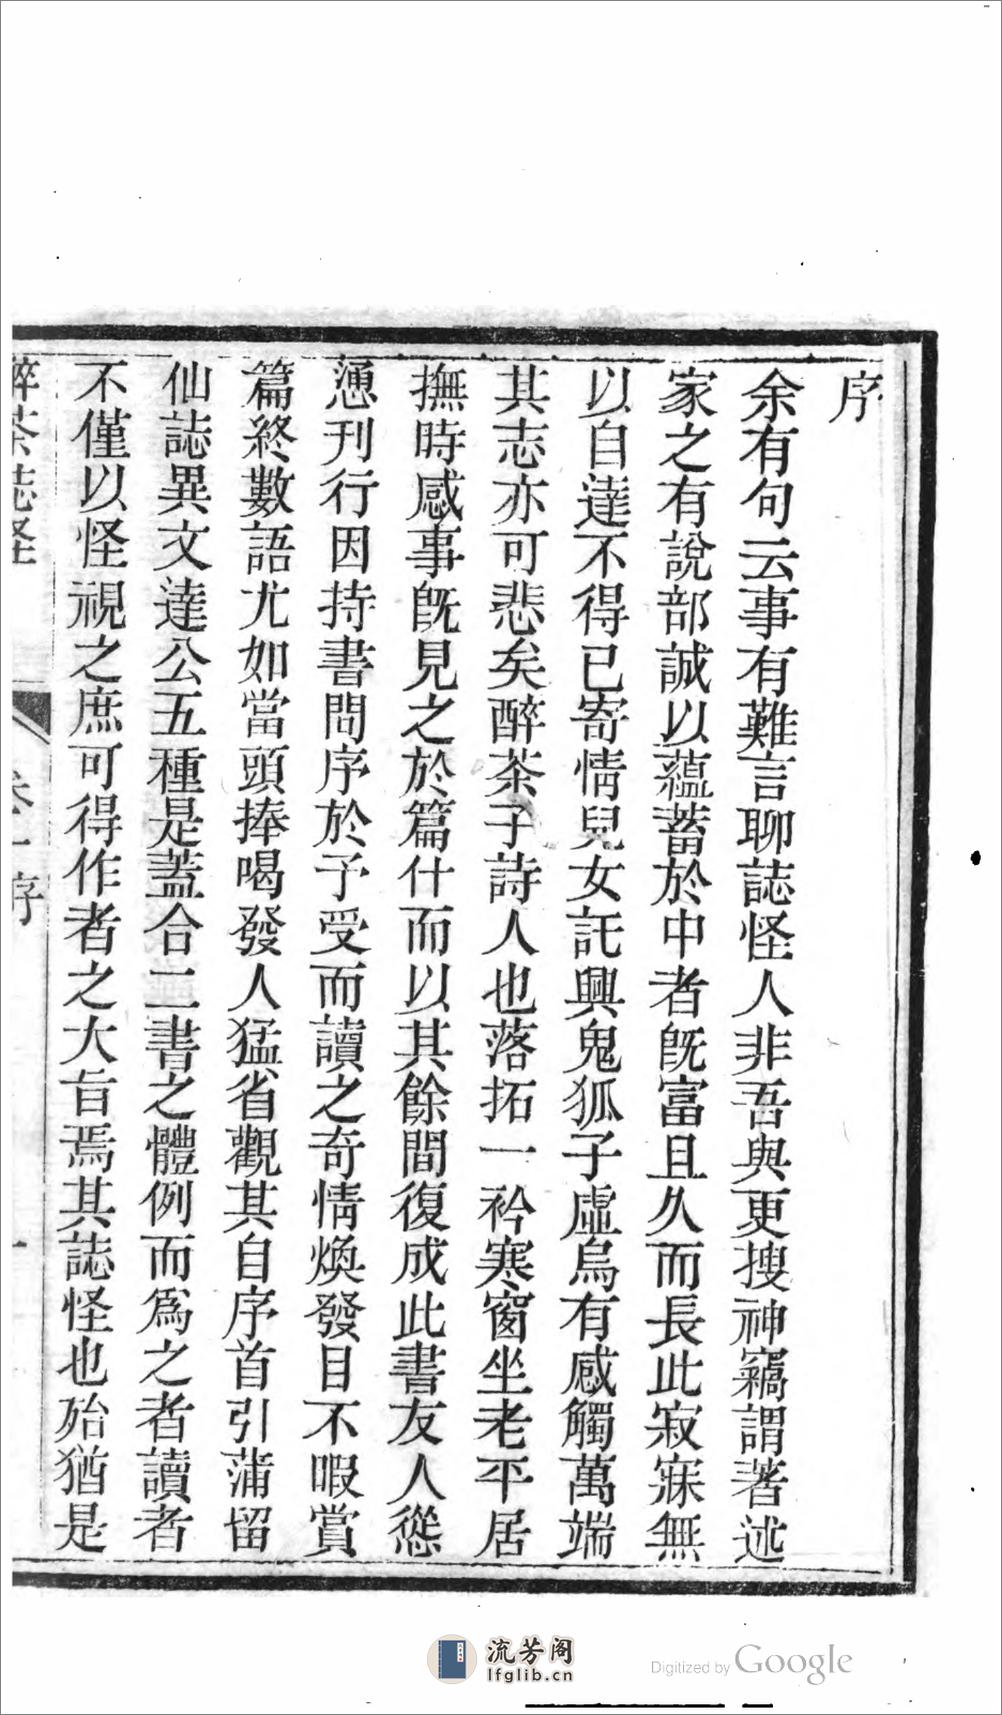 序
余有句云事有難言聊誌怪人非吾與更搜神竊謂著述
家之有說部誠以蘊蓄於中者既富且久而長此寂寐無
以自達不得已寄情兒女託興鬼狐子虛烏有感觸萬端
其志亦可悲矣醉茶子詩人也落拓一衿寒窗坐老平居
撫時感事既見之於篇什而以其餘間復成此書友人慫
慂刊行因持書問序於予受而讀之奇情煥發目不暇賞
篇終數語尤如當頭捧喝發人猛省觀其自序首引蒲留
仙誌異文達公五種是蓋合二書之體例而爲之者讀者
不僅以怪視之庶可得作者之大旨焉其誌怪也殆猶是
醉茶誌怪 卷一序 一
流芳阁
lfglib.cn
Digitized by Google